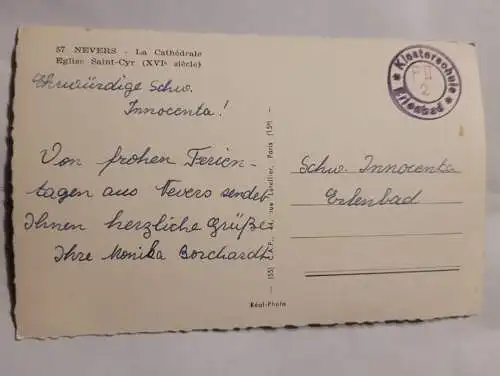 57 NEVERS - La Cathédrale
Eglise Saint-Cyr (XVIe siècle)
Ehrwürdige Schw.
Innocenta!
Von frohen Ferien-
tagen aus Nevers sendet
Ihnen herzliche Grüße
Ihre Monika Borchardt
Klosterschule
2
Erlenbad
Schw. Innocenta
Erlenbad
rue Letellier, Paris (15e)
Réal-Photo